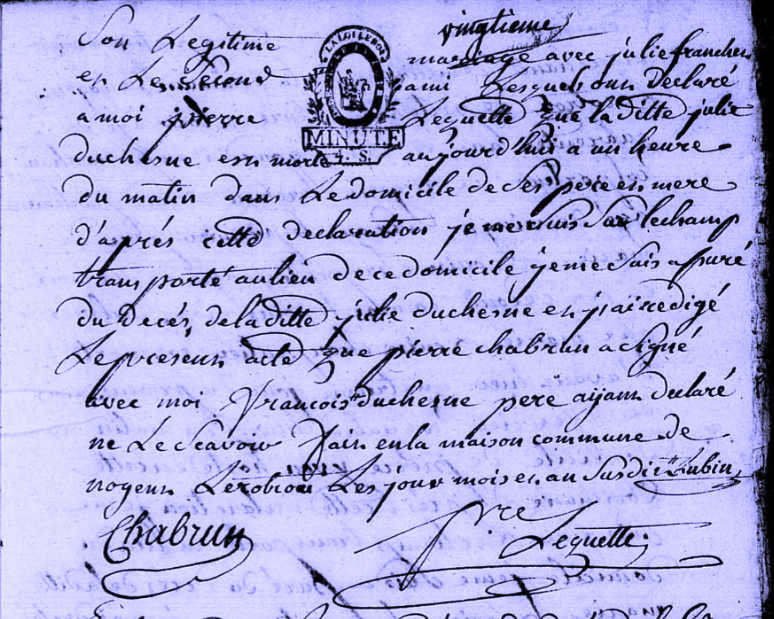 vingtieme
Son Legitime mariage avec julie franchet
et Le Second ami Lesquels ont declaré
a moi pierre Lequette que la ditte julie
duchesne est morte aujourd'hui a un heure
du matin dans Le domicile de Ses pere et mere
d'aprés cette declaration je me suis Sur lechamp
transporté au lieu de ce domicile je me Suis assuré
du Decés de la ditte julie duchesne et j'ai redigé
Le present acte que pierre chabrun a Signé
avec moi francois duchesne pere aijant declaré
ne Le Scavoir fait en la maison commune de
nogent Les jour mois et an Susdit
Chabrun
pre Lequette
LA LOI LE ROI
MINUTE
4. S.